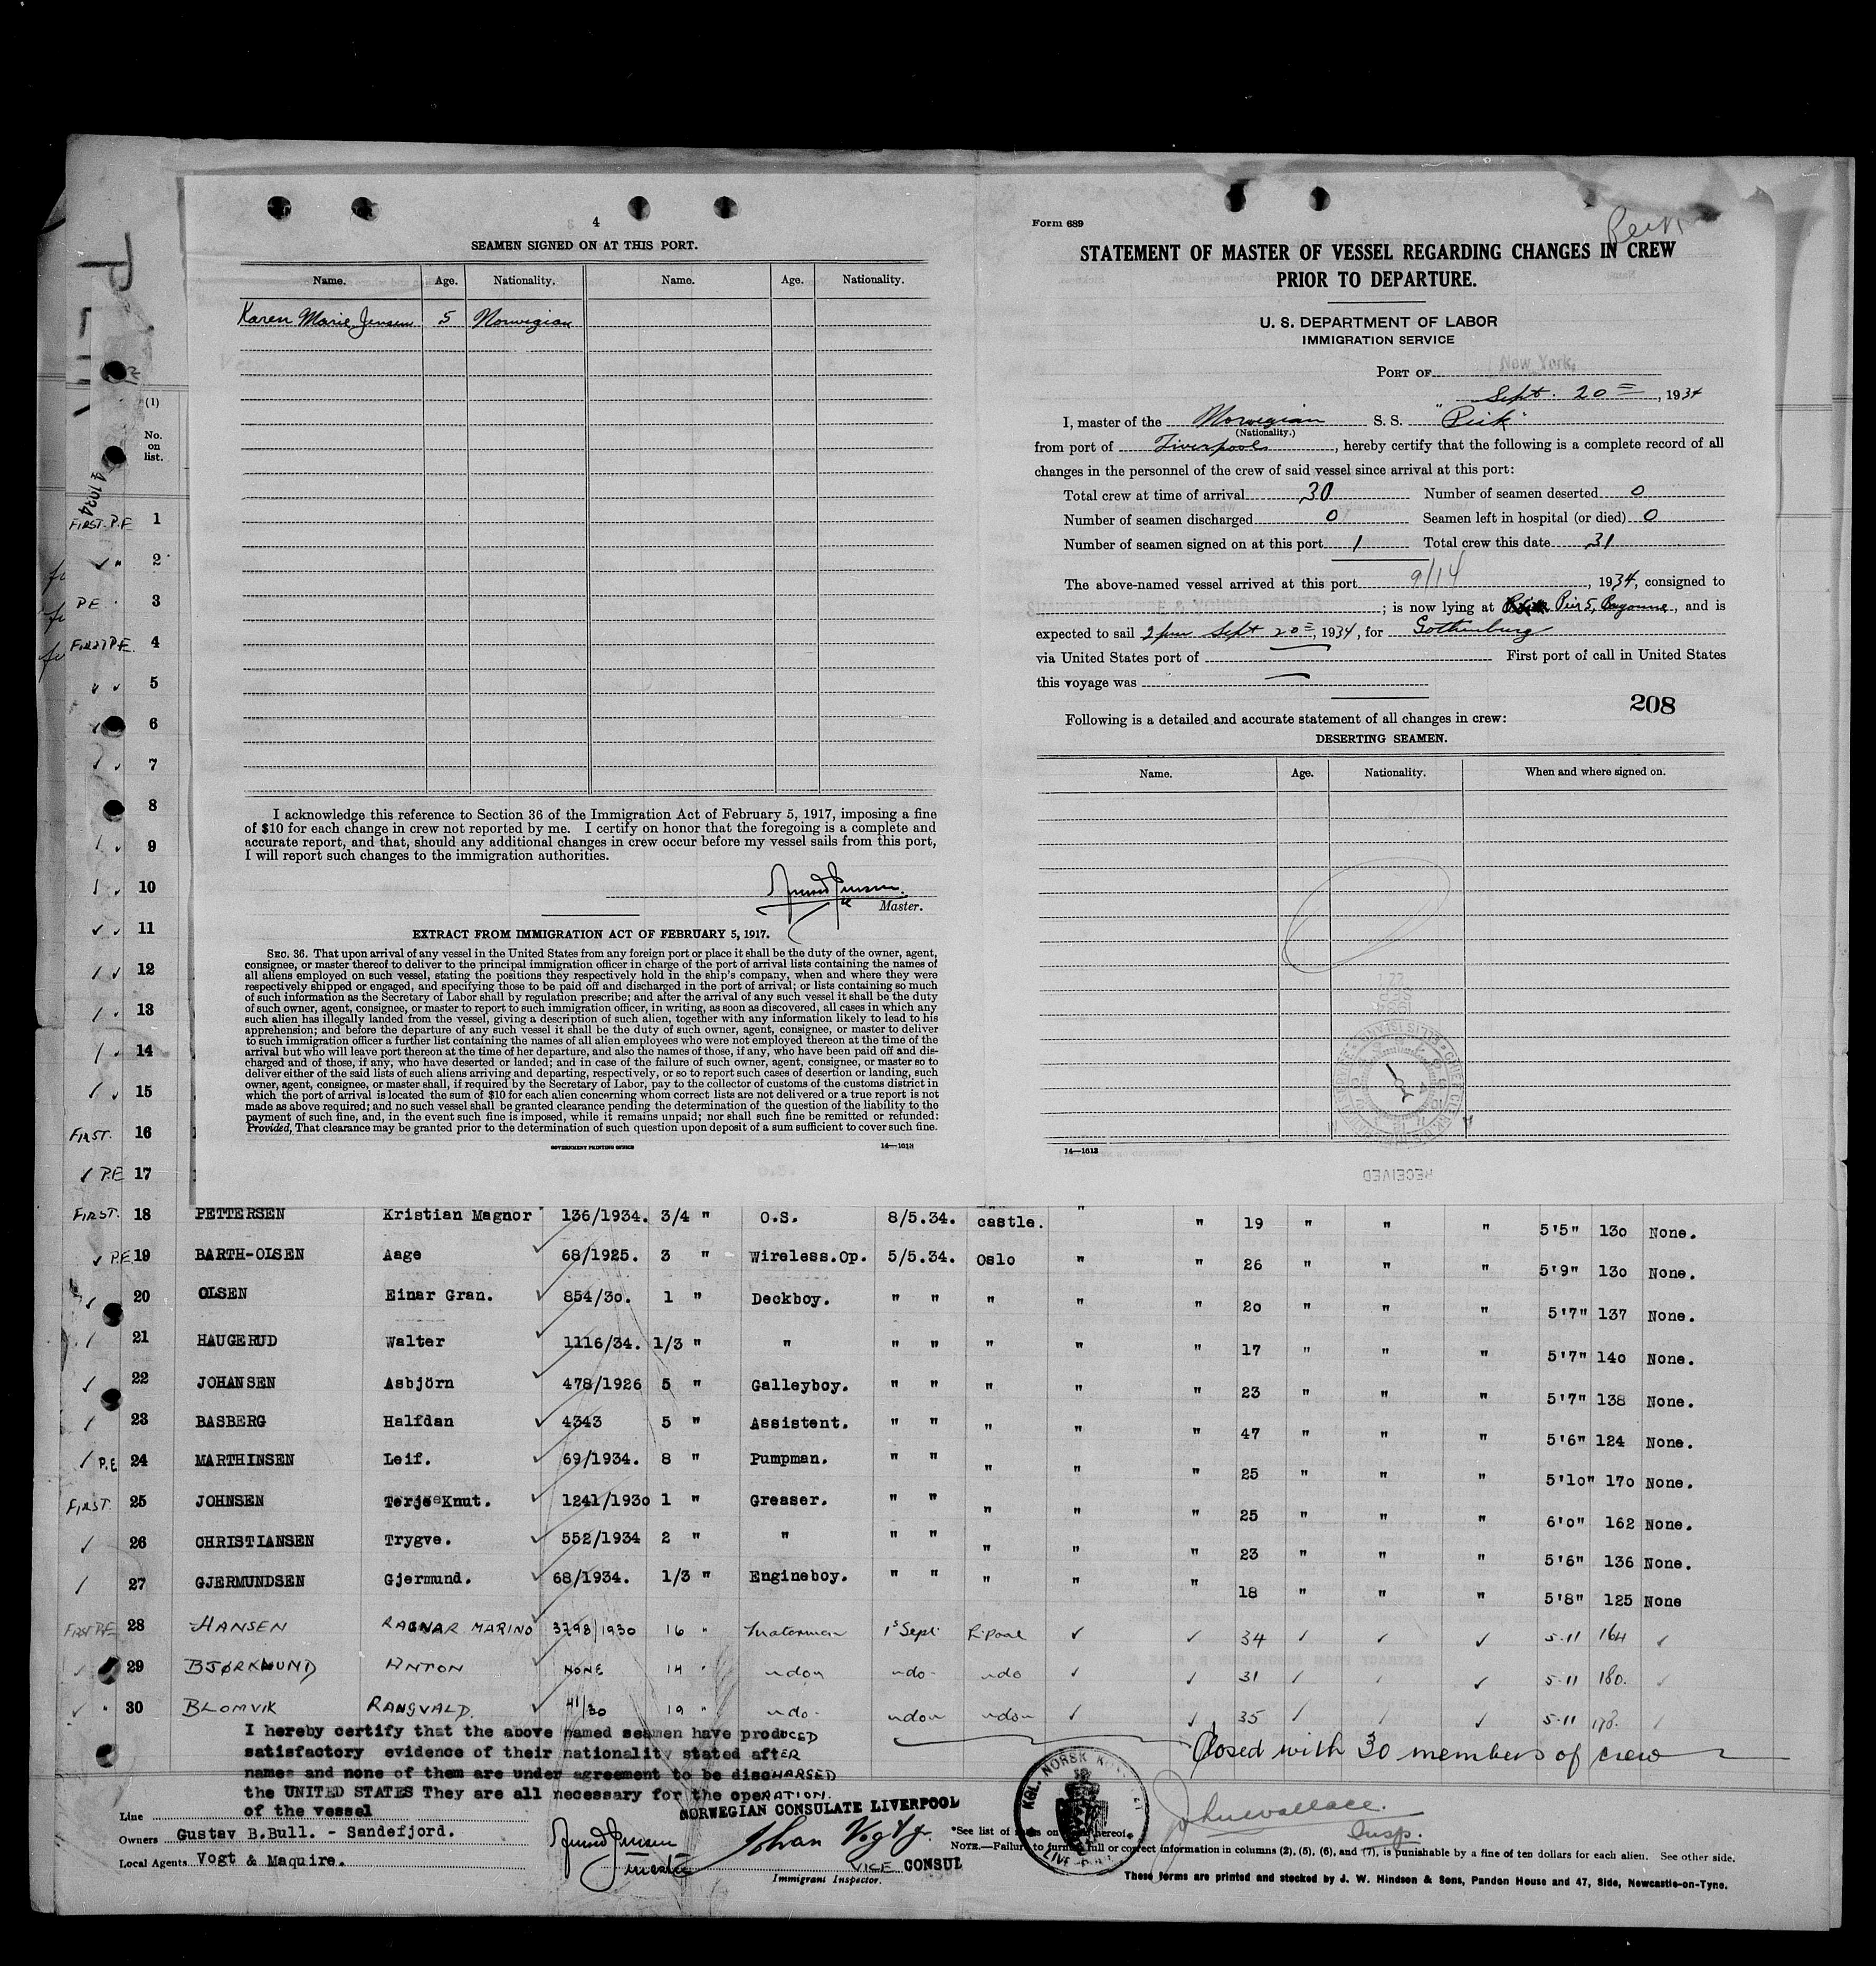 4
SEAMEN SIGNED ON AT THIS PORT.
Name. Age. Nationality. Name. Age. Nationality.
Karen Marie Jensen 5 Norwegian
I acknowledge this reference to Section 36 of the Immigration Act of February 5, 1917, imposing a fine
of $10 for each change in crew not reported by me. I certify on honor that the foregoing is a complete and
accurate report, and that, should any additional changes in crew occur before my vessel sails from this port,
I will report such changes to the immigration authorities.
Master.
EXTRACT FROM IMMIGRATION ACT OF FEBRUARY 5, 1917.
SEC. 36. That upon arrival of any vessel in the United States from any foreign port or place it shall be the duty of the owner, agent,
consignee, or master thereof to deliver to the principal immigration officer in charge of the port of arrival lists containing the names of
all aliens employed on such vessel, stating the positions they respectively hold in the ship's company, when and where they were
respectively shipped or engaged, and specifying those to be paid off and discharged in the port of arrival; or lists containing so much
of such information as the Secretary of Labor shall by regulation prescribe; and after the arrival of any such vessel it shall be the duty
of such owner, agent, consignee, or master to report to such immigration officer, in writing, as soon as discovered, all cases in which any
such alien has illegally landed from the vessel, giving a description of such alien, together with any information likely to lead to his
apprehension; and before the departure of any such vessel it shall be the duty of such owner, agent, consignee, or master to deliver
to such immigration officer a further list containing the names of all alien employees who were not employed thereon at the time of the
arrival but who will leave port thereon at the time of her departure, and also the names of those, if any, who have been paid off and dis-
charged and of those, if any, who have deserted or landed; and in case of the failure of such owner, agent, consignee, or master so to
deliver either of the said lists of such aliens arriving and departing, respectively, or so to report such cases of desertion or landing, such
owner, agent, consignee, or master shall, if required by the Secretary of Labor, pay to the collector of customs of the customs district in
which the port of arrival is located the sum of $10 for each alien concerning whom correct lists are not delivered or a true report is not
made as above required; and no such vessel shall be granted clearance pending the determination of the question of the liability to the
payment of such fine, and, in the event such fine is imposed, while it remains unpaid; nor shall such fine be remitted or refunded:
Provided, That clearance may be granted prior to the determination of such question upon deposit of a sum sufficient to cover such fine.
GOVERNMENT PRINTING OFFICE 14—1613
Form 689
Peik
STATEMENT OF MASTER OF VESSEL REGARDING CHANGES IN CREW
PRIOR TO DEPARTURE.
U. S. DEPARTMENT OF LABOR
IMMIGRATION SERVICE
PORT OF New York,
Sept. 20th, 1934
I, master of the Norwegian S. S. "Peik"
(Nationality.)
from port of Liverpool, hereby certify that the following is a complete record of all
changes in the personnel of the crew of said vessel since arrival at this port:
Total crew at time of arrival 30 Number of seamen deserted 0
Number of seamen discharged 0 Seamen left in hospital (or died) 0
Number of seamen signed on at this port 1 Total crew this date 31
The above-named vessel arrived at this port 9/14, 1934, consigned to
; is now lying at Pier 5, Bayonne, and is
expected to sail 2pm Sept 20th, 1934, for Gothenburg
via United States port of First port of call in United States
this voyage was
208
Following is a detailed and accurate statement of all changes in crew:
DESERTING SEAMEN.
Name. Age. Nationality. When and where signed on.
14—1613
RECEIVED
(1)
No.
on
list.
FIRST. P.E 1
✓ " 2
PE 3
FIRST P.E. 4
5
6
7
8
9
10
11
12
13
14
15
FIRST. 16
✓ P.E 17
FIRST. 18 PETTERSEN Kristian Magnor 136/1934. 3/4 " O.S. 8/5.34. castle. " " 19 " " " 5'5" 130 None.
✓ P.E. 19 BARTH-OLSEN Aage 68/1925. 3 " Wireless.Op. 5/5.34. Oslo " " 26 " " " 5'9" 130 None.
20 OLSEN Einar Gran. 854/30. 1 " Deckboy. " " " " " 20 " " " 5'7" 137 None.
21 HAUGERUD Walter 1116/34. 1/3 " " " " " " " 17 " " " 5'7" 140 None.
22 JOHANSEN Asbjörn 478/1926 5 " Galleyboy. " " " " " 23 " " " 5'7" 138 None.
23 BASBERG Halfdan 4343 5 " Assistent. " " " " " 47 " " " 5'6" 124 None.
P.E 24 MARTHINSEN Leif. 69/1934. 8 " Pumpman. " " " " " 25 " " " 5'10" 170 None.
FIRST. 25 JOHNSEN Terje Knut. 1241/1930 1 " Greaser. " " " " " 25 " " " 6'0" 162 None.
26 CHRISTIANSEN Trygve. 552/1934 2 " " " " " " " 23 " " " 5'6" 136 None.
27 GJERMUNDSEN Gjermund. 68/1934. 1/3 " Engineboy. " " " " " 18 " " " 5'8" 125 None
FIRST P.E 28 HANSEN RAGNAR MARINO 3798/1930 16 " Motorman 1s Sept. L.pool ✓ ✓ 34 ✓ ✓ ✓ 5-11 164 ✓
29 BJØRKLUND ANTON NONE 14 " do do do ✓ ✓ 31 ✓ ✓ 5-11 180. ✓
30 BLOMVIK RANGVALD. 41/30 19 " do do do ✓ ✓ 35 ✓ ✓ ✓ 5-11 178. ✓
I hereby certify that the above named seamen have produCED
satisfactory evidence of their nationality stated aftER
names and none of them are under agreement to be discHARSED
the UNITED STATES They are all necessary for the opeRATION.
of the vessel
Closed with 30 members of crew
John Wallace.
Insp.
NORWEGIAN CONSULATE LIVERPOOL
Johan Vogt
VICE CONSUL
Immigrant Inspector.
master
KGL. NORSK
Line
Owners Gustav B.Bull. - Sandefjord.
Local Agents Vogt & Maquire.
*See list of on hereof.
NOTE.—Failure to furnish full or correct information in columns (2), (5), (6), and (7), is punishable by a fine of ten dollars for each alien. See other side.
These forms are printed and stocked by J. W. Hindson & Sons, Pandon House and 47, Side, Newcastle-on-Tyne.